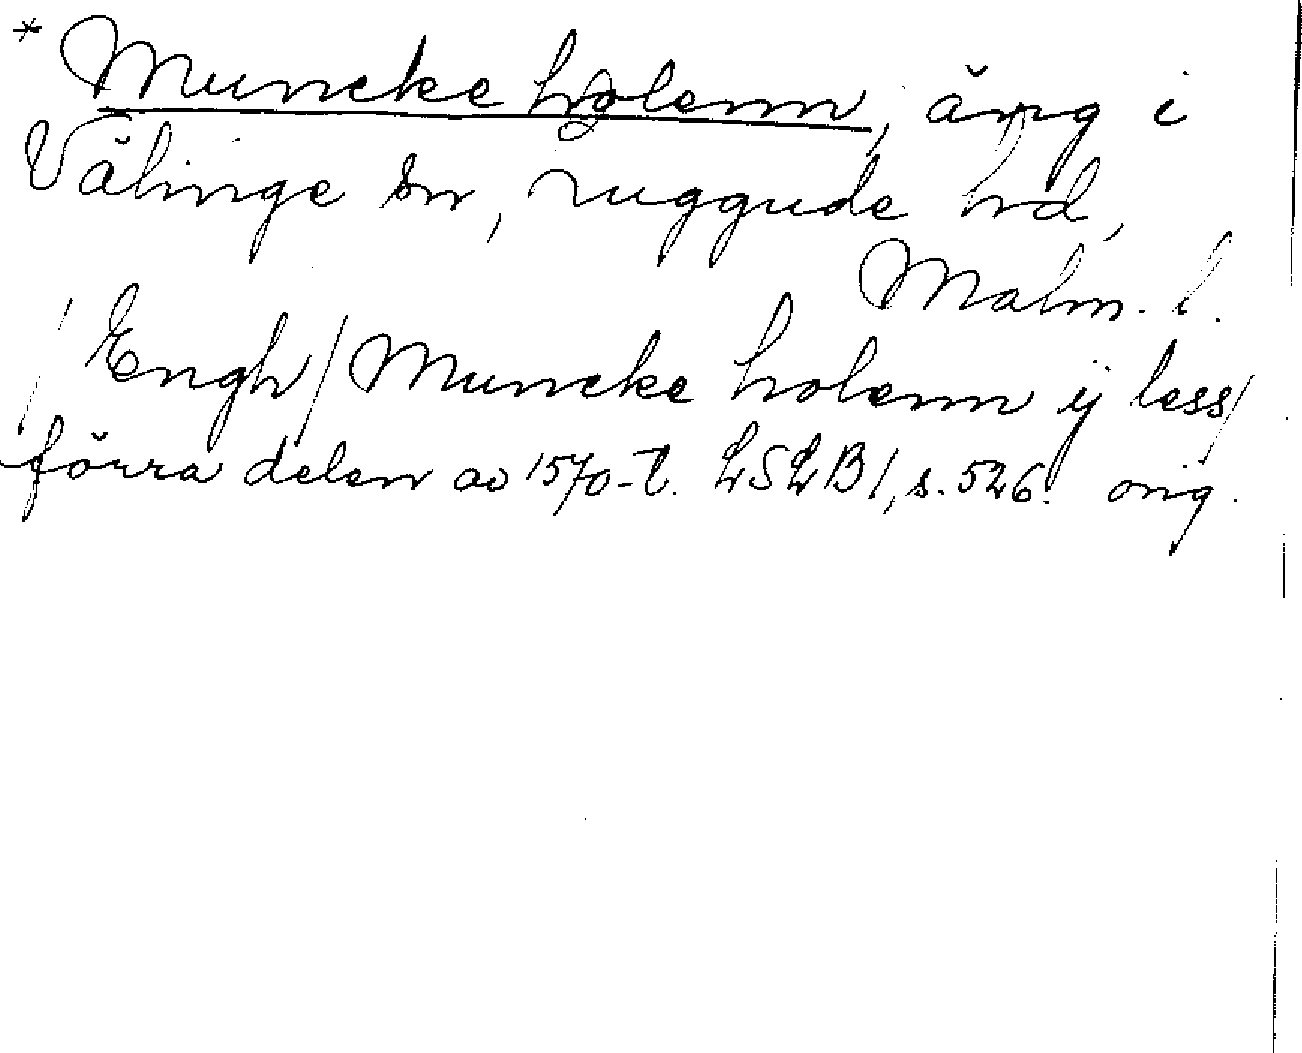 * Muncke holenn, äng i
Välinge sn, Luggude hd,
Malm. l.
/Engh/ Muncke holenn ij less/
förra delen av 1570-t. LSLB1, s. 526. orig.